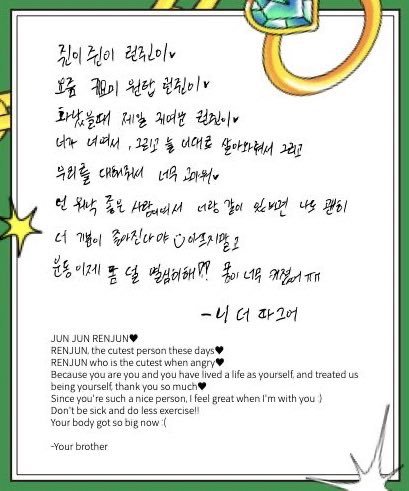 쥔이 쥔이 런쥔이♥
요즘 귀요미 원탑 런쥔이♥
화났을때 제일 귀여운 런쥔이♥
너가 너여서, 그리고 늘 너대로 살아와줘서 그리고
우리를 대해줘서 너무 고마워♥
넌 워낙 좋은 사람이여서 너랑 같이 있으면 나도 괜히
더 기분이 좋아진다야 :) 아프지말고
운동 이제 좀 덜 열심히해!? 몸이 너무 커졌어 ㅠㅠ
- 니 더
JUN JUN RENJUN♥
RENJUN, the cutest person these days♥
RENJUN who is the cutest when angry♥
Because you are you and you have lived a life as yourself, and treated us
being yourself, thank you so much♥
Since you're such a nice person, I feel great when I'm with you :)
Don't be sick and do less exercise!!
Your body got so big now :(
-Your brother